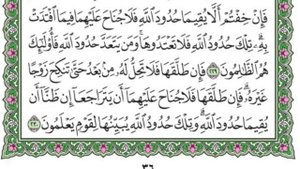 فَإِنْ خِفْتُمْ أَلَّا يُقِيمَا حُدُودَ اللَّهِ فَلَا جُنَاحَ عَلَيْهِمَا فِيمَا افْتَدَتْ
بِهِ ۗ تِلْكَ حُدُودُ اللَّهِ فَلَا تَعْتَدُوهَا ۚ وَمَن يَتَعَدَّ حُدُودَ اللَّهِ فَأُولَٰئِكَ
هُمُ الظَّالِمُونَ ﴿٢٢٩﴾ فَإِن طَلَّقَهَا فَلَا تَحِلُّ لَهُ مِن بَعْدُ حَتَّىٰ تَنكِحَ زَوْجًا
غَيْرَهُ ۗ فَإِن طَلَّقَهَا فَلَا جُنَاحَ عَلَيْهِمَا أَن يَتَرَاجَعَا إِن ظَنَّا أَن
يُقِيمَا حُدُودَ اللَّهِ ۗ وَتِلْكَ حُدُودُ اللَّهِ يُبَيِّنُهَا لِقَوْمٍ يَعْلَمُونَ ﴿٢٣٠﴾
٣٦